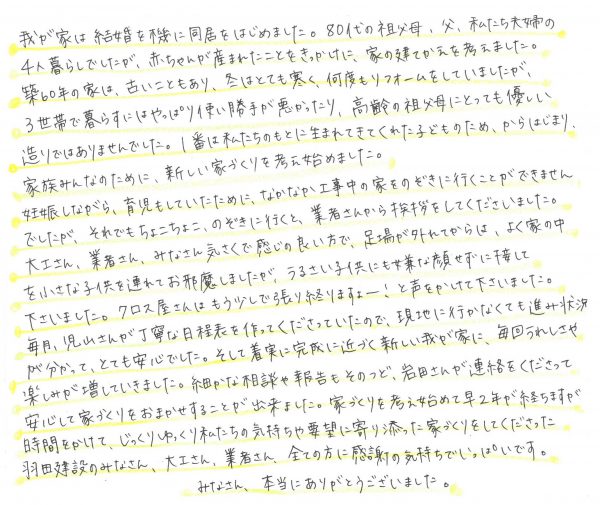 我が家は結婚を機に同居をはじめました。80代の祖父母、父、私たち夫婦の
4人暮らしでしたが、赤ちゃんが産まれたことをきっかけに、家の建てかえを考えました。
築60年の家は、古いこともあり、冬はとても寒く、何度もリフォームをしていましたが、
3世帯で暮らすにはやっぱり使い勝手が悪かったり、高齢の祖父母にとっても優しい
造りではありませんでした。1番は私たちのもとに生まれてきてくれた子どものため、からはじまり、
家族みんなのために、新しい家づくりを考え始めました。
妊娠しながら、育児もしていたために、なかなか工事中の家をのぞきに行くことができません
でしたが、それでもちょこちょこ、のぞきに行くと、業者さんから挨拶をしてくださいました。
大工さん、業者さん、みなさん気さくで感じの良い方で、足場が外れてからは、よく家の中
を小さな子供を連れてお邪魔しましたが、うるさい子供にも嫌な顔せずに接して
下さいました。クロス屋さんはもう少しで張り終りますよー!と声をかけて下さいました。
毎月、児山さんが丁寧な日程表を作ってくださっていたので、現地に行かなくても進み状況
が分かって、とても安心でした。そして着実に完成に近づく新しい我が家に、毎回うれしさや
楽しみが増していきました。細かな相談や報告もそのつど、岩田さんが連絡をくださって
安心して家づくりをおまかせすることが出来ました。家づくりを考え始めて早2年が経ちますが
時間をかけて、じっくりゆっくり私たちの気持ちや要望に寄り添った家づくりをしてくださった
羽田建設のみなさん、大工さん、業者さん、全ての方に感謝の気持ちでいっぱいです。
みなさん、本当にありがとうございました。